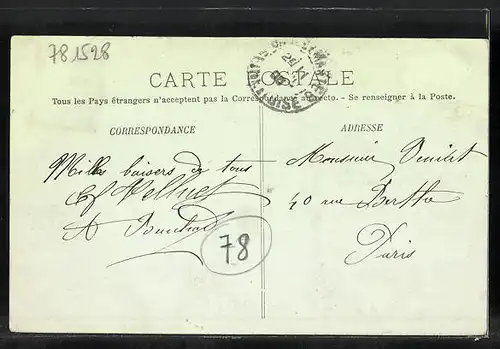 781528
CARTE POSTALE
Tous les Pays étrangers n'acceptent pas la Correspondance au recto. - Se renseigner à la Poste.
CORRESPONDANCE
ADRESSE
Mille baisers de tous
Monsieur
40 rue Berthe
Paris
78